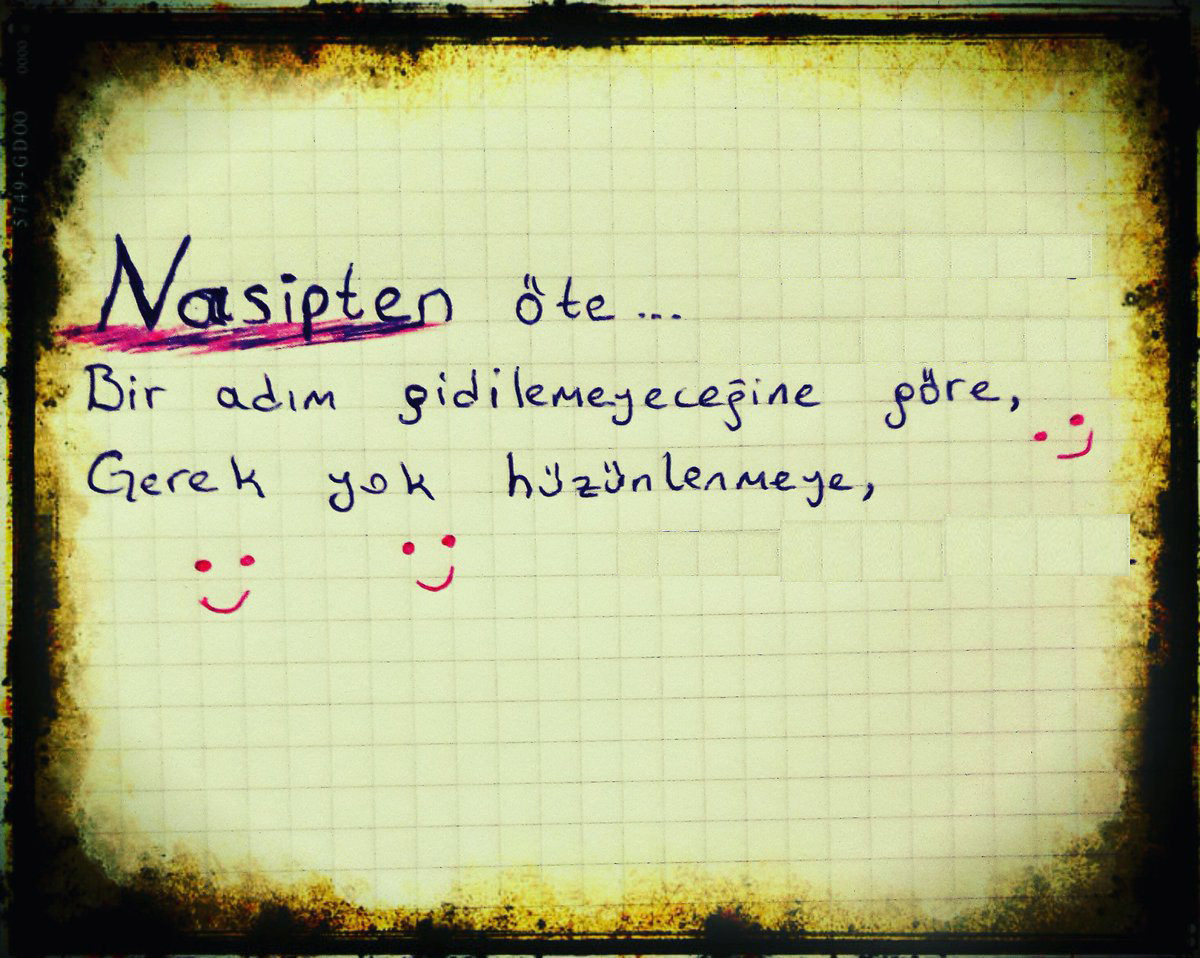 5749-GDOO
0000
Nasipten öte...
Bir adım gidilemeyeceğine göre,
Gerek yok hüzünlenmeye,